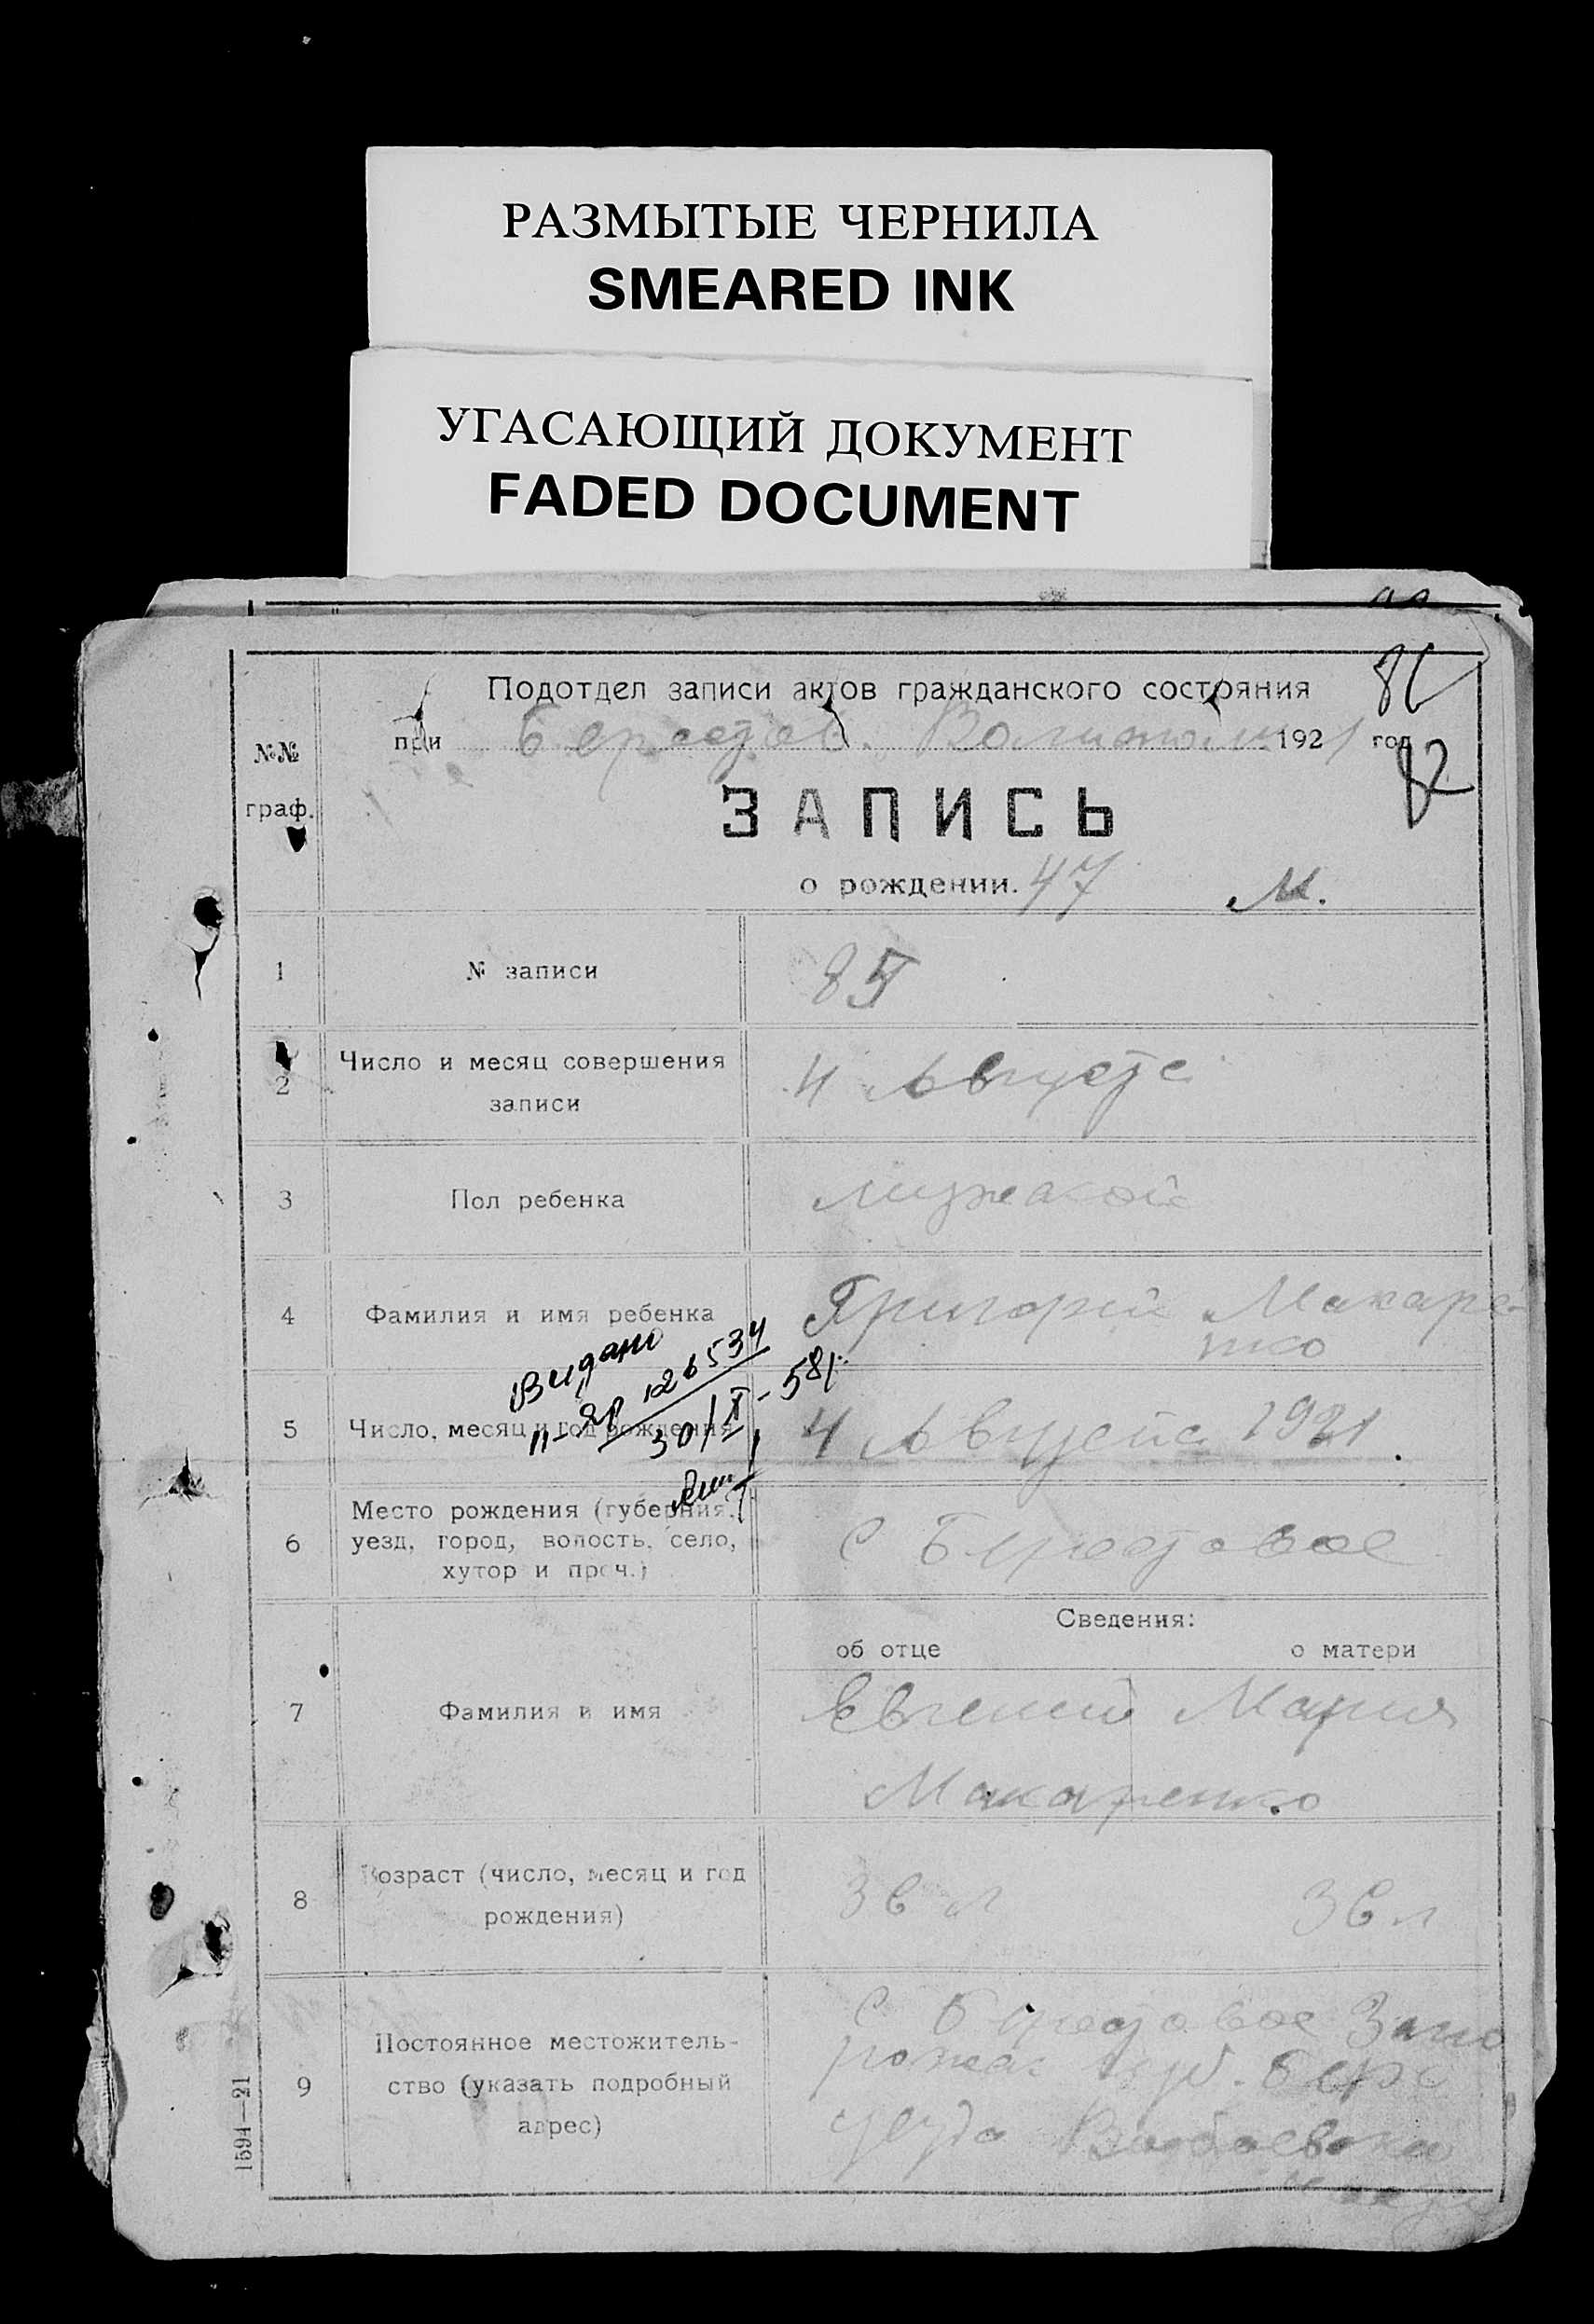 РАЗМЫТЫЕ ЧЕРНИЛА
SMEARED INK
УГАСАЮЩИЙ ДОКУМЕНТ
FADED DOCUMENT
Подотдел записи актов гражданского состояния
при Берестов. 1921 год
82
№№
граф.
ЗАПИСЬ
о рождении. 47 М.
1 № записи 85
2 Число и месяц совершения
записи
4 Августа
3 Пол ребенка мужской
4 Фамилия и имя ребенка Григорий Макаре-
нко
Видано
ЯР 126534
30/X-58г.
5 Число, месяц и год рождения 4 Августа 1921.
6 Место рождения (губерния,
уезд, город, волость, село,
хутор и проч.)
С Берестовое
Сведения:
об отце о матери
7 Фамилия и имя Евгений Мария
Макаренко
8 Возраст (число, месяц и год
рождения)
36 л 36 л
9 Постоянное местожитель-
ство (указать подробный
адрес)
С Берестовое Запо
рожск губ. Берд
уезда
1594—21